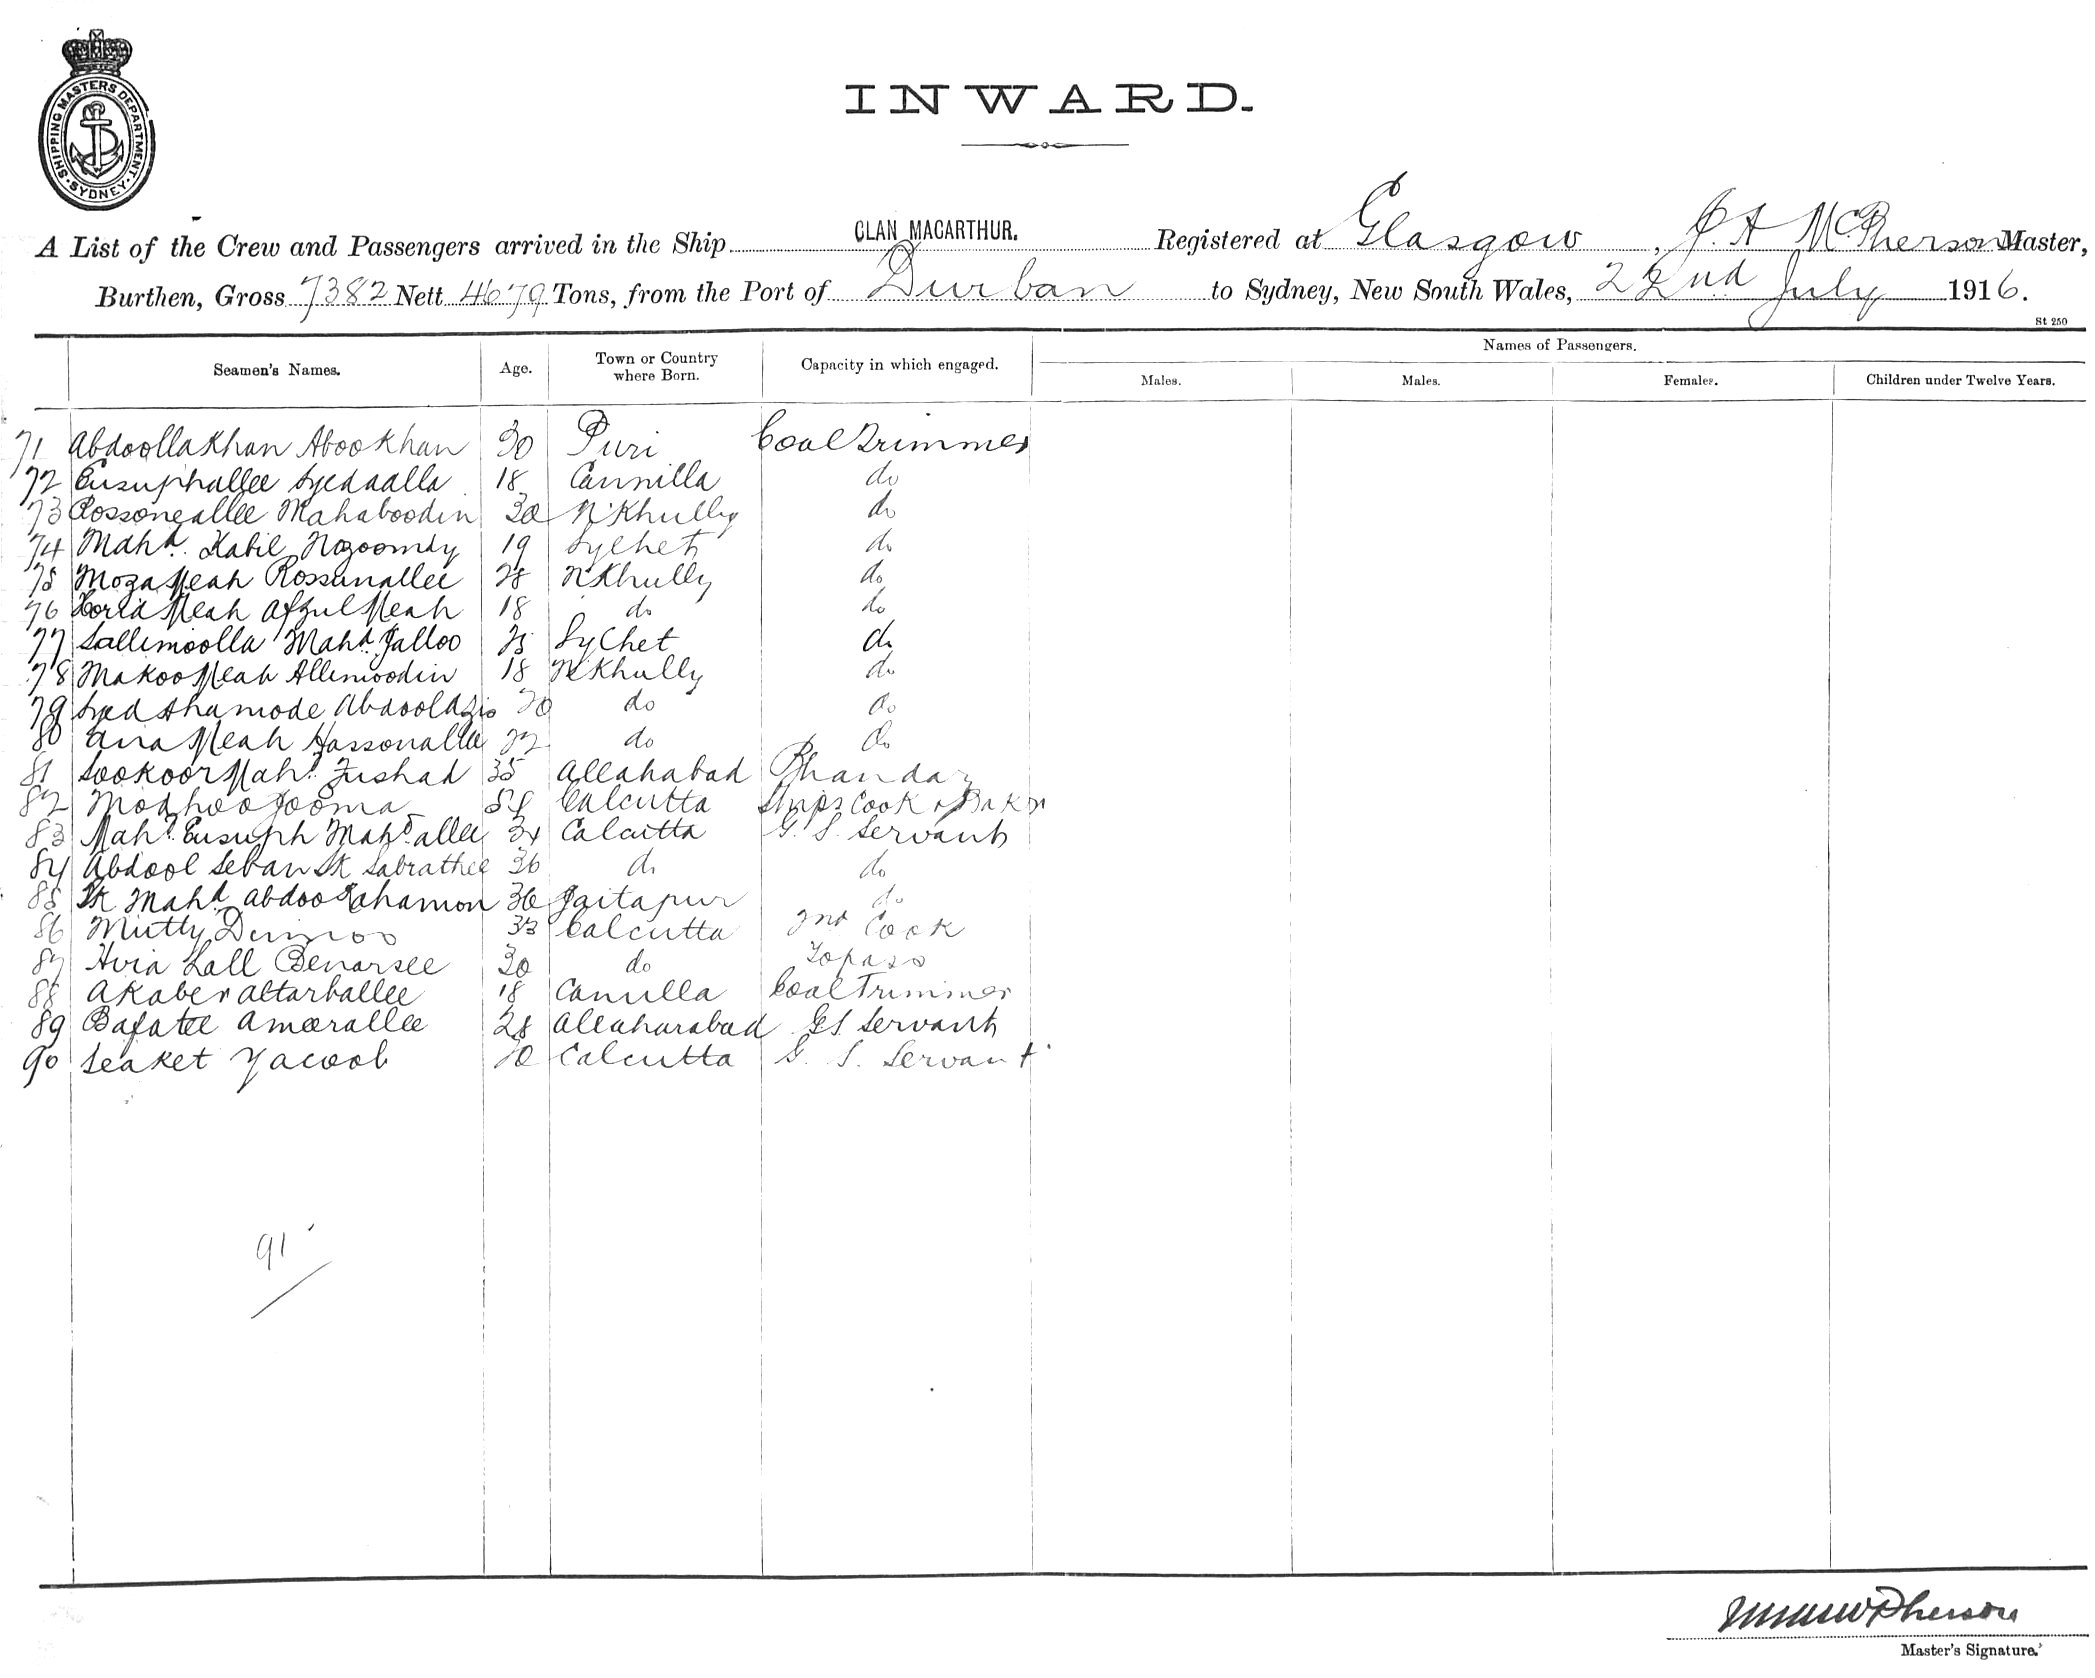 SHIPPING MASTERS DEPARTMENT · SYDNEY ·
INWARD.
A List of the Crew and Passengers arrived in the Ship CLAN MACARTHUR. Registered at Glasgow, J. A McPherson Master,
Burthen, Gross 7382 Nett 4679 Tons, from the Port of Durban to Sydney, New South Wales, 22nd July 1916.
St 250
Seamen's Names. Age. Town or Country where Born. Capacity in which engaged. Names of Passengers.
Males. Males. Females. Children under Twelve Years.
71 Abdoolla Khan Aboo Khan 30 Puri Coal Trimmer
72 Eusuphallee Syedaalla 18 Camilla do
73 Rossoneallee Mahaboodin 30 N'Khully do
74 Mahd. Kabil Nozoomdy 19 Sylhet do
75 Moza Meah Rossunallee 28 N'Khully do
76 Meah Afzul Meah 18 do do
77 Sallimoolla Mahd. Jalloo 25 Sylhet do
78 Makoo Meah Allimoodin 18 N'Khully do
79 Syed Ahamode Abdool Azis 20 do do
80 Ana Meah Hassonallee 22 do do
81 Sookoor Mahd. 35 Allahabad Bhandar
82 Modhoo Jooma Calcutta Ships Cook & Baker
83 Mahd. Eusuph Mahd. allee 34 Calcutta G. S. Servant
84 Abdool Seban Sk Sabrathee 36 do do
85 Sk Mahd Abdoo Rahamon 36 Jaitapur do
86 Mutty 33 Calcutta 2nd Cook
87 Hvia Lall Benarsee 30 do Topass
88 Akaber Attarballee 18 Camilla Coal Trimmer
89 Bafatee Ameerallee 28 Allaharabad G S. Servant
90 Seaket Yacoob 20 Calcutta G. S. Servant
91
McPherson
Master's Signature.